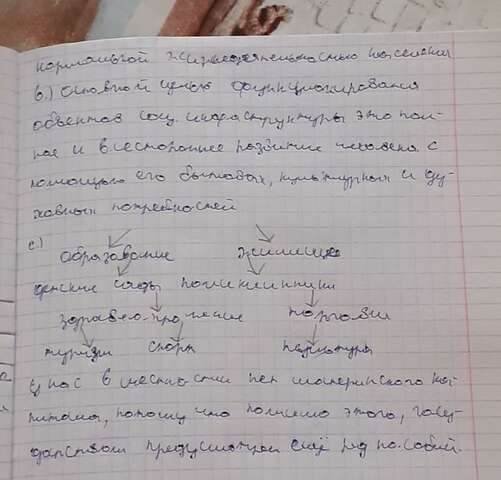 нормальной жизнедеятельностью населения
b.) Основной целью функционирования
объектов соц. инфраструктуры это пол-
ное и всестороннее развитие человека с
помощью его бытовых, культурных и ду-
ховных потребностей
c.)
образование жилище
детские сады поликлиники
здравоо-хранение торговли
туризм спорт культура
У нас в местности нет материнского ка-
питала, потому что помимо этого, госу-
дарством предусмотрен ещё ряд пособий.